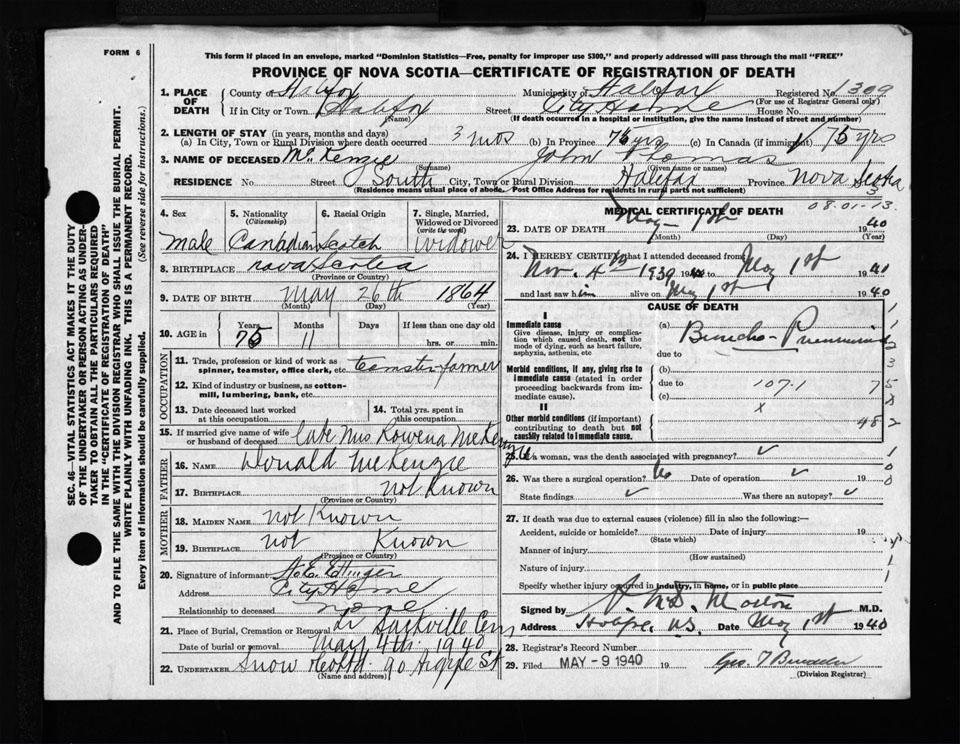 FORM 6
This form if placed in an envelope, marked "Dominion Statistics—Free, penalty for improper use $300," and properly addressed will pass through the mail "FREE"
PROVINCE OF NOVA SCOTIA—CERTIFICATE OF REGISTRATION OF DEATH
1. PLACE OF DEATH
County of Halifax Municipality of Halifax Registered No. 1309
(For use of Registrar General only)
If in City or Town Halifax Street City Home House No.
(Name) (If death occurred in a hospital or institution, give the name instead of street and number)
2. LENGTH OF STAY (in years, months and days)
(a) In City, Town or Rural Division where death occurred 3 mos (b) In Province 75 yrs (c) In Canada (if immigrant) 75 yrs
3. NAME OF DECEASED McKenzie John Thomas
(Surname) (Given name or names)
RESIDENCE No. Street South City, Town or Rural Division Halifax Province Nova Scotia
(Residence means usual place of abode. Post Office Address for residents in rural parts not sufficient)
4. Sex
Male
5. Nationality
(Citizenship)
Canadian
6. Racial Origin
Scotch
7. Single, Married, Widowed or Divorced
(write the word)
Widower
8. BIRTHPLACE Nova Scotia
(Province or Country)
9. DATE OF BIRTH May 26th 1864
(Month) (Day) (Year)
10. AGE in
Years Months Days If less than one day
75 11 hrs. or min.
OCCUPATION
11. Trade, profession or kind of work as
spinner, teamster, office clerk, etc. Teamster farmer
12. Kind of industry or business, as cotton-
mill, lumbering, bank, etc.
13. Date deceased last worked
at this occupation
14. Total yrs. spent in
this occupation
15. If married give name of wife
or husband of deceased late Mrs Rowena McKenzie
FATHER
16. NAME Donald McKenzie
17. BIRTHPLACE not Known
(Province or Country)
MOTHER
18. MAIDEN NAME not Known
19. BIRTHPLACE not Known
(Province or Country)
20. Signature of informant H. E. Ettinger
Address City Home
Relationship to deceased none
21. Place of Burial, Cremation or Removal Sackville Cem
Date of burial or removal May 4th 1940
22. UNDERTAKER Snow 90 Argyle St
(Name and address)
MEDICAL CERTIFICATE OF DEATH
08-01-13
23. DATE OF DEATH May 1940
(Month) (Day) (Year)
24. I HEREBY CERTIFY that I attended deceased from
Nov. 4th 1939 to May 1st 1940
and last saw him alive on May 1st 1940
CAUSE OF DEATH
I
Immediate cause
Give disease, injury or complication which caused death, not the mode of dying, such as heart failure, asphyxia, asthenia, etc
(a) Broncho-Pneumonia
due to
Morbid conditions, if any, giving rise to immediate cause (stated in order proceeding backwards from immediate cause).
(b)
due to 107.1
(c)
x
II
Other morbid conditions (if important) contributing to death but not causally related to immediate cause.
482
25. If a woman, was the death associated with pregnancy? ✓
26. Was there a surgical operation? No Date of operation ✓ 19
State findings ✓ Was there an autopsy? ✓
27. If death was due to external causes (violence) fill in also the following:—
Accident, suicide or homicide? Date of injury 19
(State which)
Manner of injury
(How sustained)
Nature of injury
Specify whether injury occurred in industry, in home, or in public place
Signed by Morton M.D.
Address Halifax, N.S. Date May 1st 1940
28. Registrar's Record Number
29. Filed MAY -9 1940 19
(Division Registrar)
SEC. 46—VITAL STATISTICS ACT MAKES IT THE DUTY
OF THE UNDERTAKER OR PERSON ACTING AS UNDER-
TAKER TO OBTAIN ALL THE PARTICULARS REQUIRED
IN THE "CERTIFICATE OF REGISTRATION OF DEATH"
AND TO FILE THE SAME WITH THE DIVISION REGISTRAR WHO SHALL ISSUE THE BURIAL PERMIT.
WRITE PLAINLY WITH UNFADING INK. THIS IS A PERMANENT RECORD.
Every item of information should be carefully supplied. (See reverse side for instructions.)